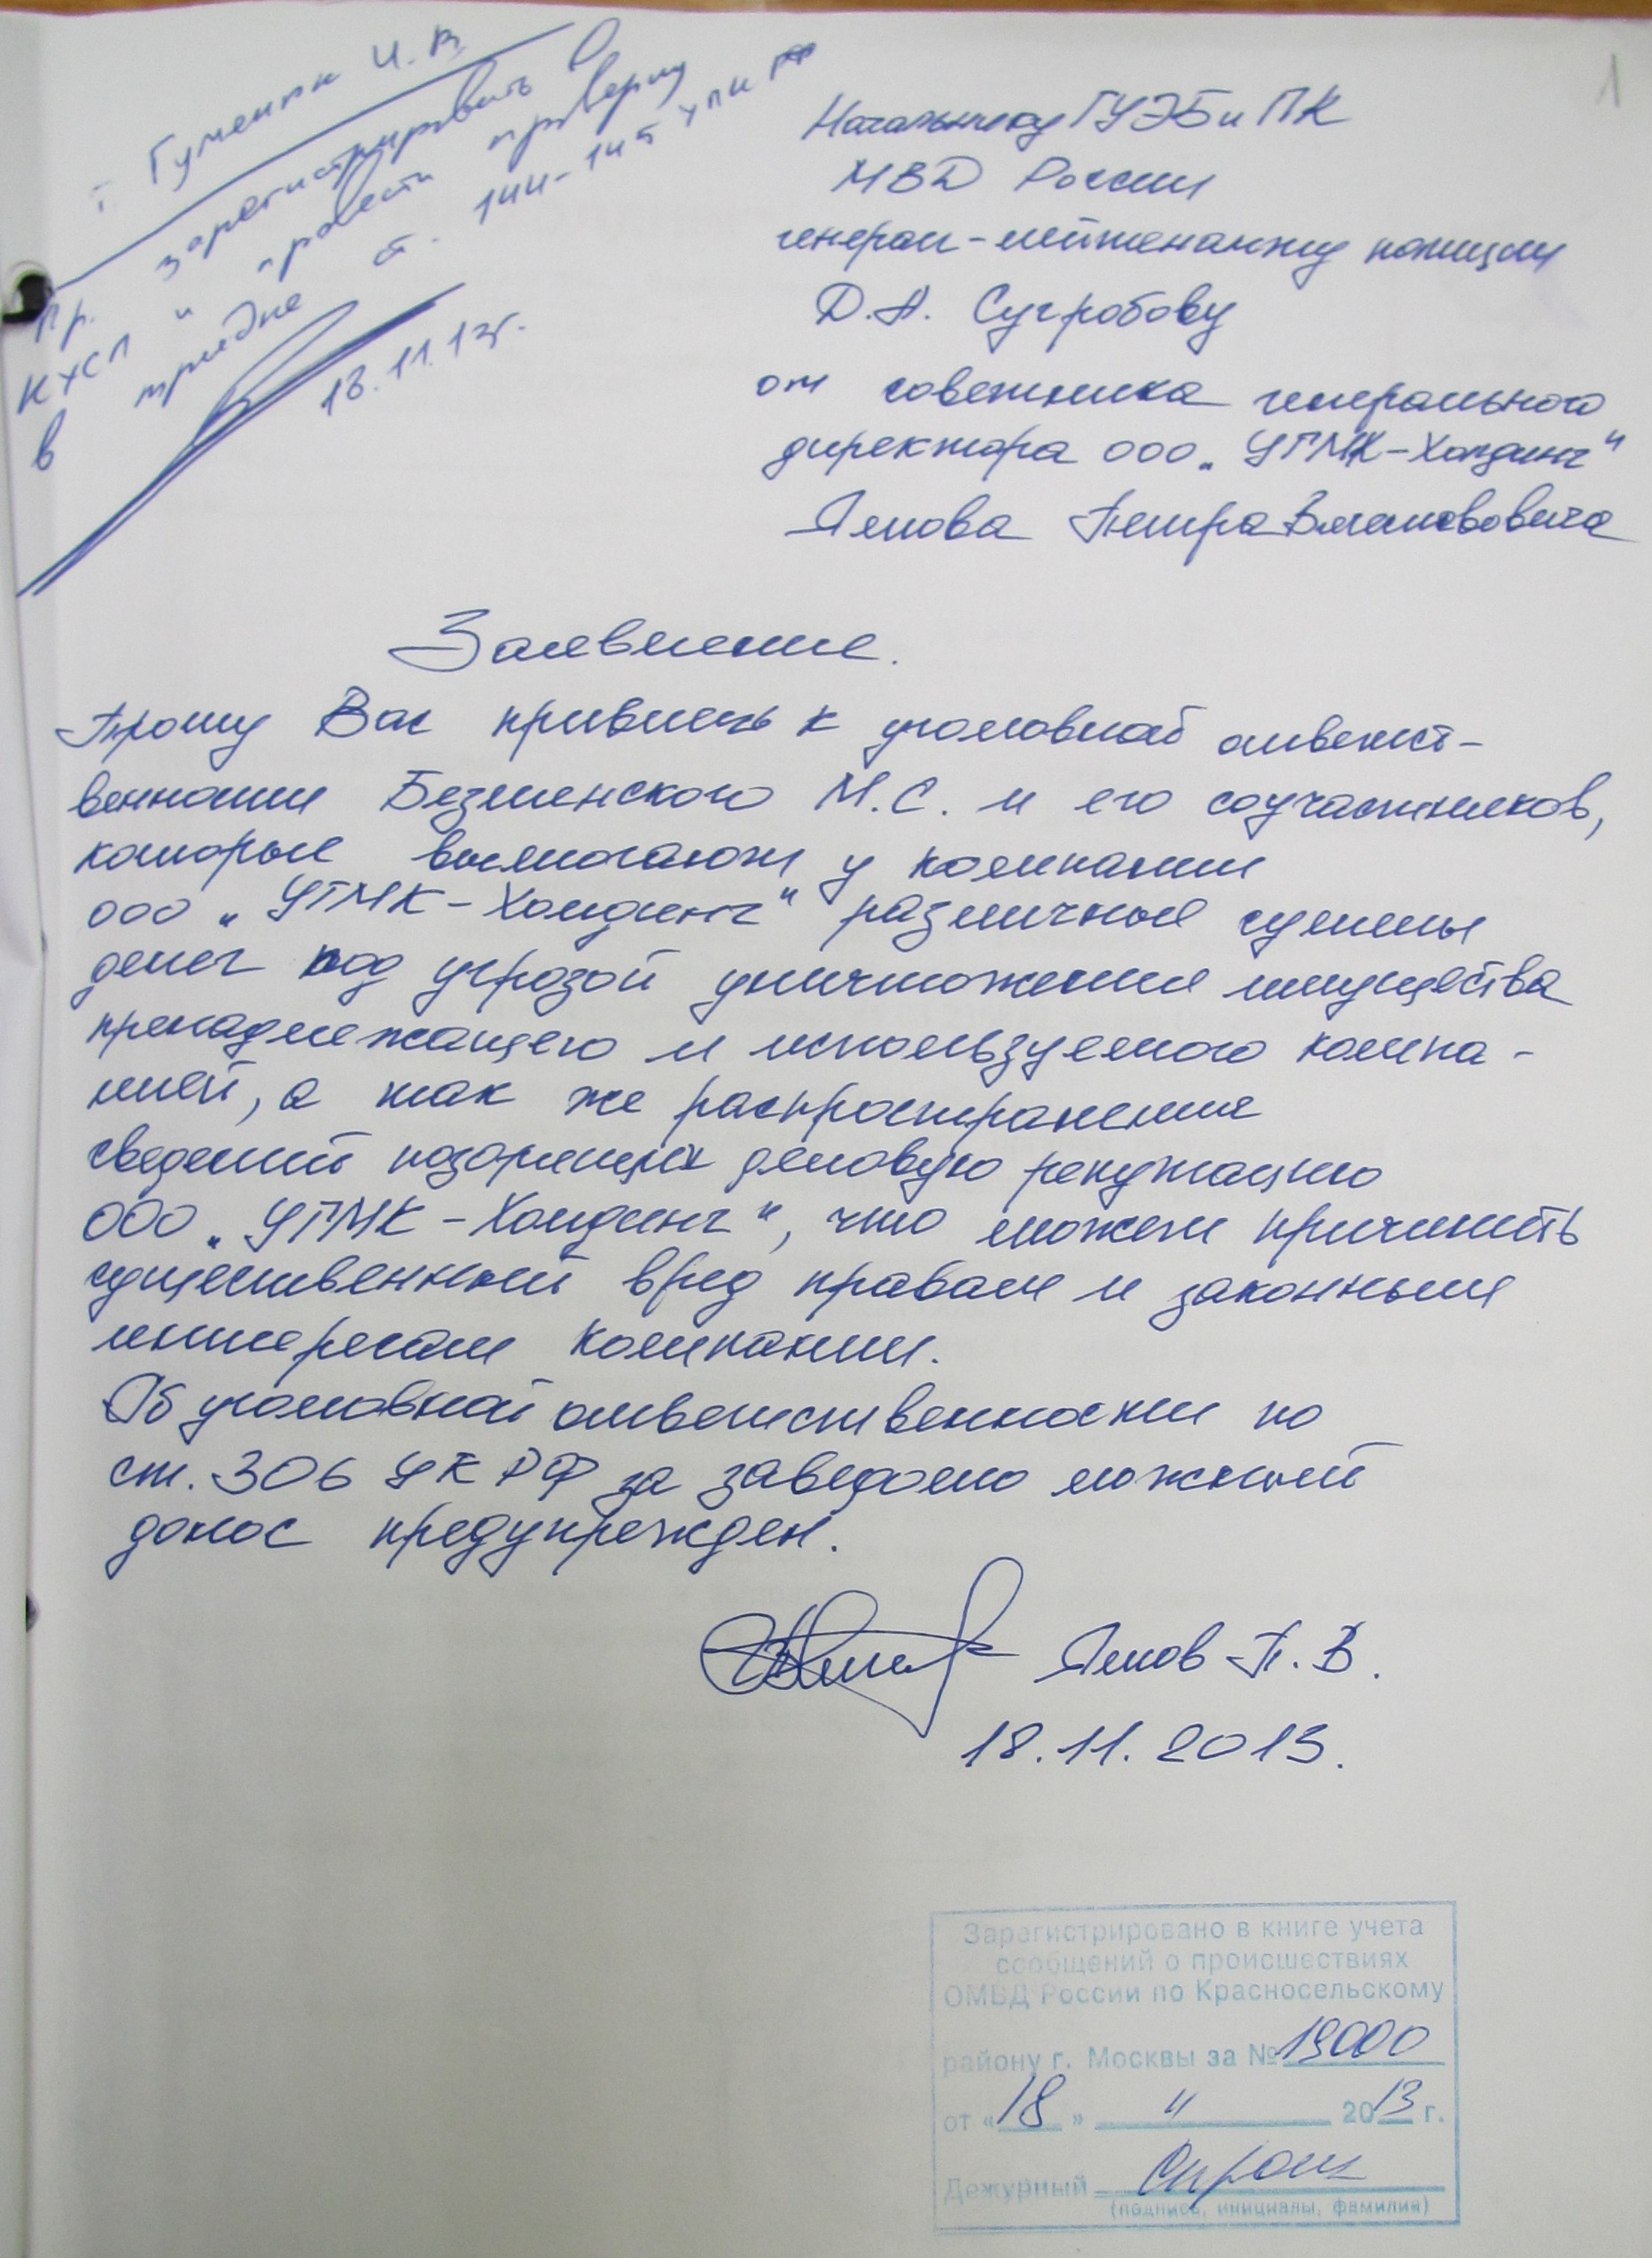 т. Гуменюк И.В.
пр. зарегистрировать в
КУСП и провести проверку
в порядке ст. 144-145 УПК РФ
18.11.13г.
1
Начальнику ГУЭБиПК
МВД России
генерал-лейтенанту полиции
Д.А. Сугробову
от советника генерального
директора ООО „УГМК-Холдинг“
Ямова Петра Вячеславовича
Заявление.
Прошу Вас привлечь к уголовной ответст-
венности Безменского М.С. и его соучастников,
которые вымогают у компании
ООО „УГМК-Холдинг“ различные суммы
денег под угрозой уничтожения имущества
принадлежащего и используемого компа-
нией, а так же распространения
сведений позорящих деловую репутацию
ООО „УГМК-Холдинг“, что может причинить
существенный вред правам и законным
интересам компании.
Об уголовной ответственности по
ст. 306 УК РФ за заведомо ложный
донос предупрежден.
Ямов П.В.
18.11.2013.
Зарегистрировано в книге учета
сообщений о происшествиях
ОМВД России по Красносельскому
району г. Москвы за № 19000
от «18» 11 2013 г.
Дежурный
(подпись, инициалы, фамилия)